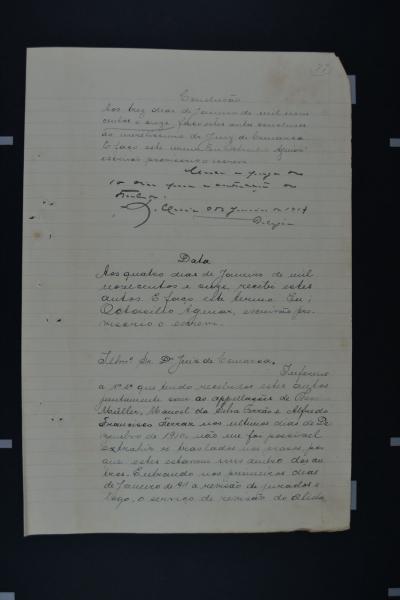 77
Conclusão
Aos trez dias de Janeiro de mil nove
centos e onze, faço estes autos conclusos
ao meretissimo Dr. Juiz de Comarca
E faço este termo Eu Aguiar
escrivão provisorio o escrevi
o prazo de
10 dias para a extracção do
de Janeiro de 1911
Data
Aos quatro dias de Janeiro de mil
novecentos e onze, recebi estes
autos. E faço este termo Eu,
Octacilio Aguiar, escrivão pro-
visorio o escrevi.
Illmo. Sr. Dr Juiz de Comarca.
Informo
a V.S. que tendo recebido estes autos
juntamente com as appellações de
Müller, Manoel da Silva e Alfredo
Francisco Ferraz nos ultimos dias de De-
zembro de 1910, não me foi possivel
extrahir os traslados nos prazos por
que estes estavam uns dentro dos ou
tros. Entrando nos primeiros dias
de Janeiro de 911 a revisão de jurados e
logo, o serviço de revisão do alista